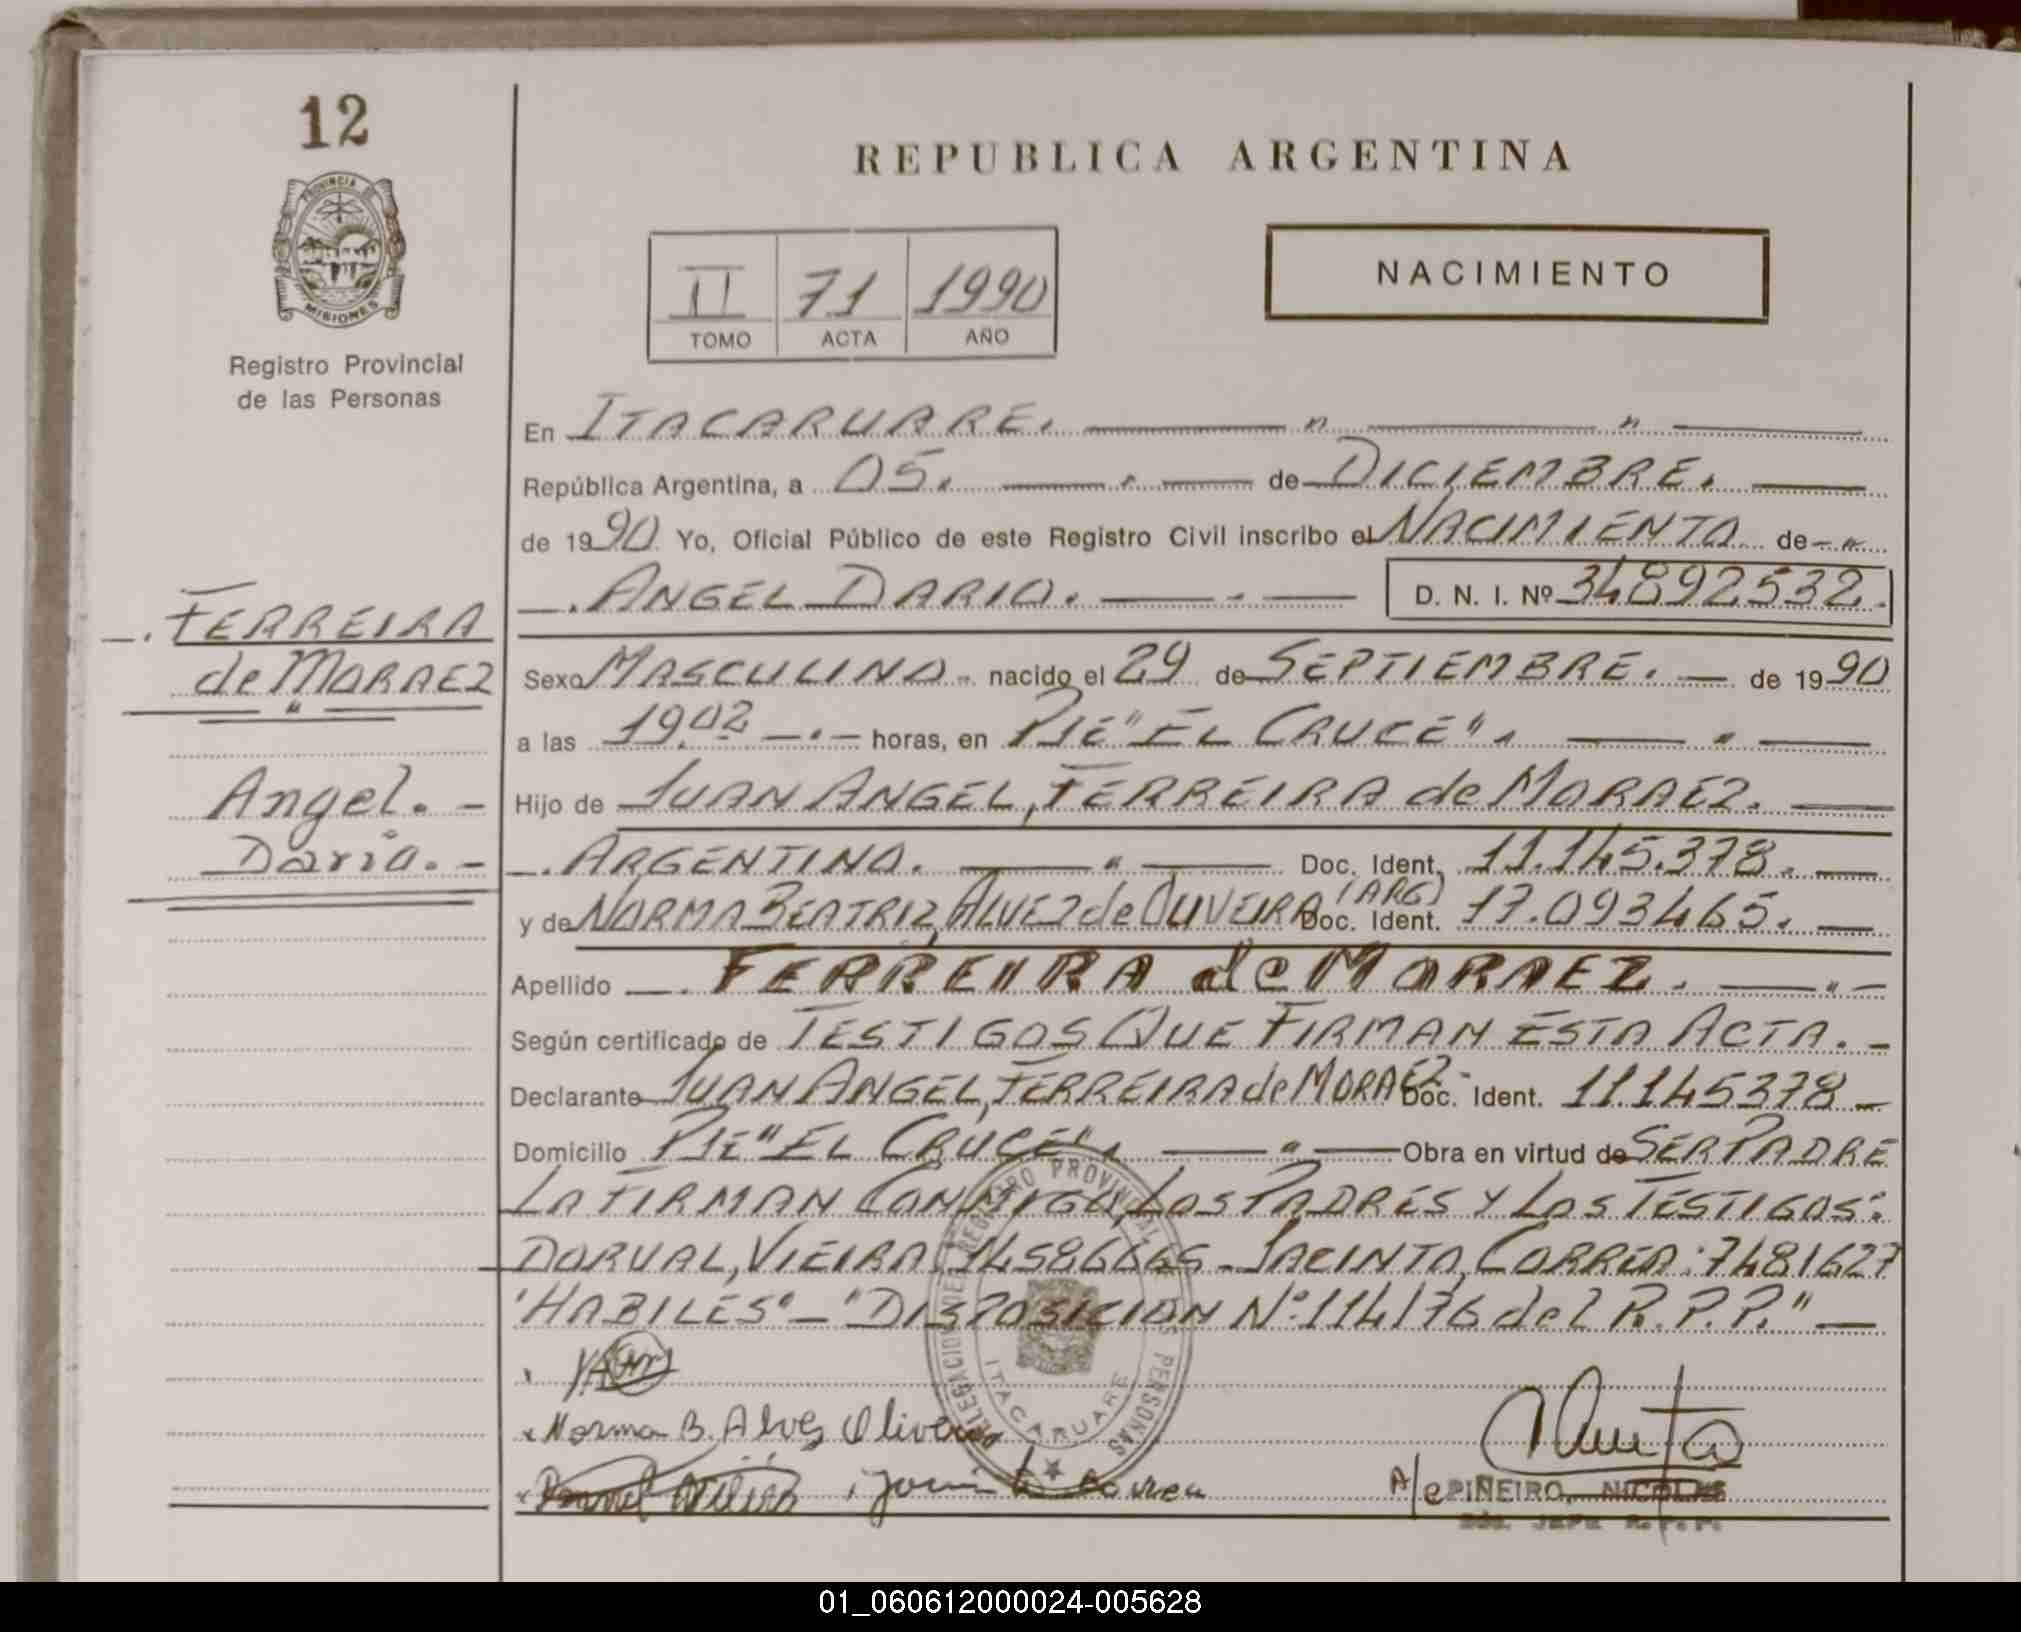 12
PROVINCIA DE
MISIONES
Registro Provincial
de las Personas
REPUBLICA ARGENTINA
II 71 1990
TOMO ACTA AÑO
NACIMIENTO
En ITACARUARE. — " — " —
República Argentina, a 05. — . — de DICIEMBRE. —
de 1990 Yo, Oficial Público de este Registro Civil inscribo el NACIMIENTO de - "
—. ANGEL DARIO. — . — D. N. I. Nº 34892532.
—. FERREIRA
de MORAEZ
— " —
Angel. -
Dario. -
Sexo MASCULINO - nacido el 29 de SEPTIEMBRE. — de 1990
a las 19,02 — . — horas, en PJE "EL CRUCE". — " —
Hijo de JUAN ANGEL, FERREIRA de MORAEZ. —
—. ARGENTINO. — " — Doc. Ident. 11.145.378. —
y de NORMA BEATRIZ, ALVEZ de OLIVEIRA (ARG) Doc. Ident. 17.093465. —
Apellido —. FERREIRA de MORAEZ. — " —
Según certificado de TESTIGOS QUE FIRMAN ESTA ACTA. -
Declarante JUAN ANGEL, FERREIRA de MORAEZ - Doc. Ident. 11.145378 —
Domicilio PJE "EL CRUCE". — " — Obra en virtud de SER PADRE
LA FIRMAN CONMIGO, LOS PADRES Y LOS TESTIGOS:
DORVAL, VIEIRA: 14586665 - JACINTO, CORREA: 7481627
"HABILES" - "DISPOSICION Nº: 114/76 del R.P.P." —
DELEGACION DEL REGISTRO PROVINCIAL DE LAS PERSONAS
ITACARUARE
Norma B. Alves Olivera
A/c PIÑEIRO, NICOLAS
JEFE R.P.P.
01_060612000024-005628